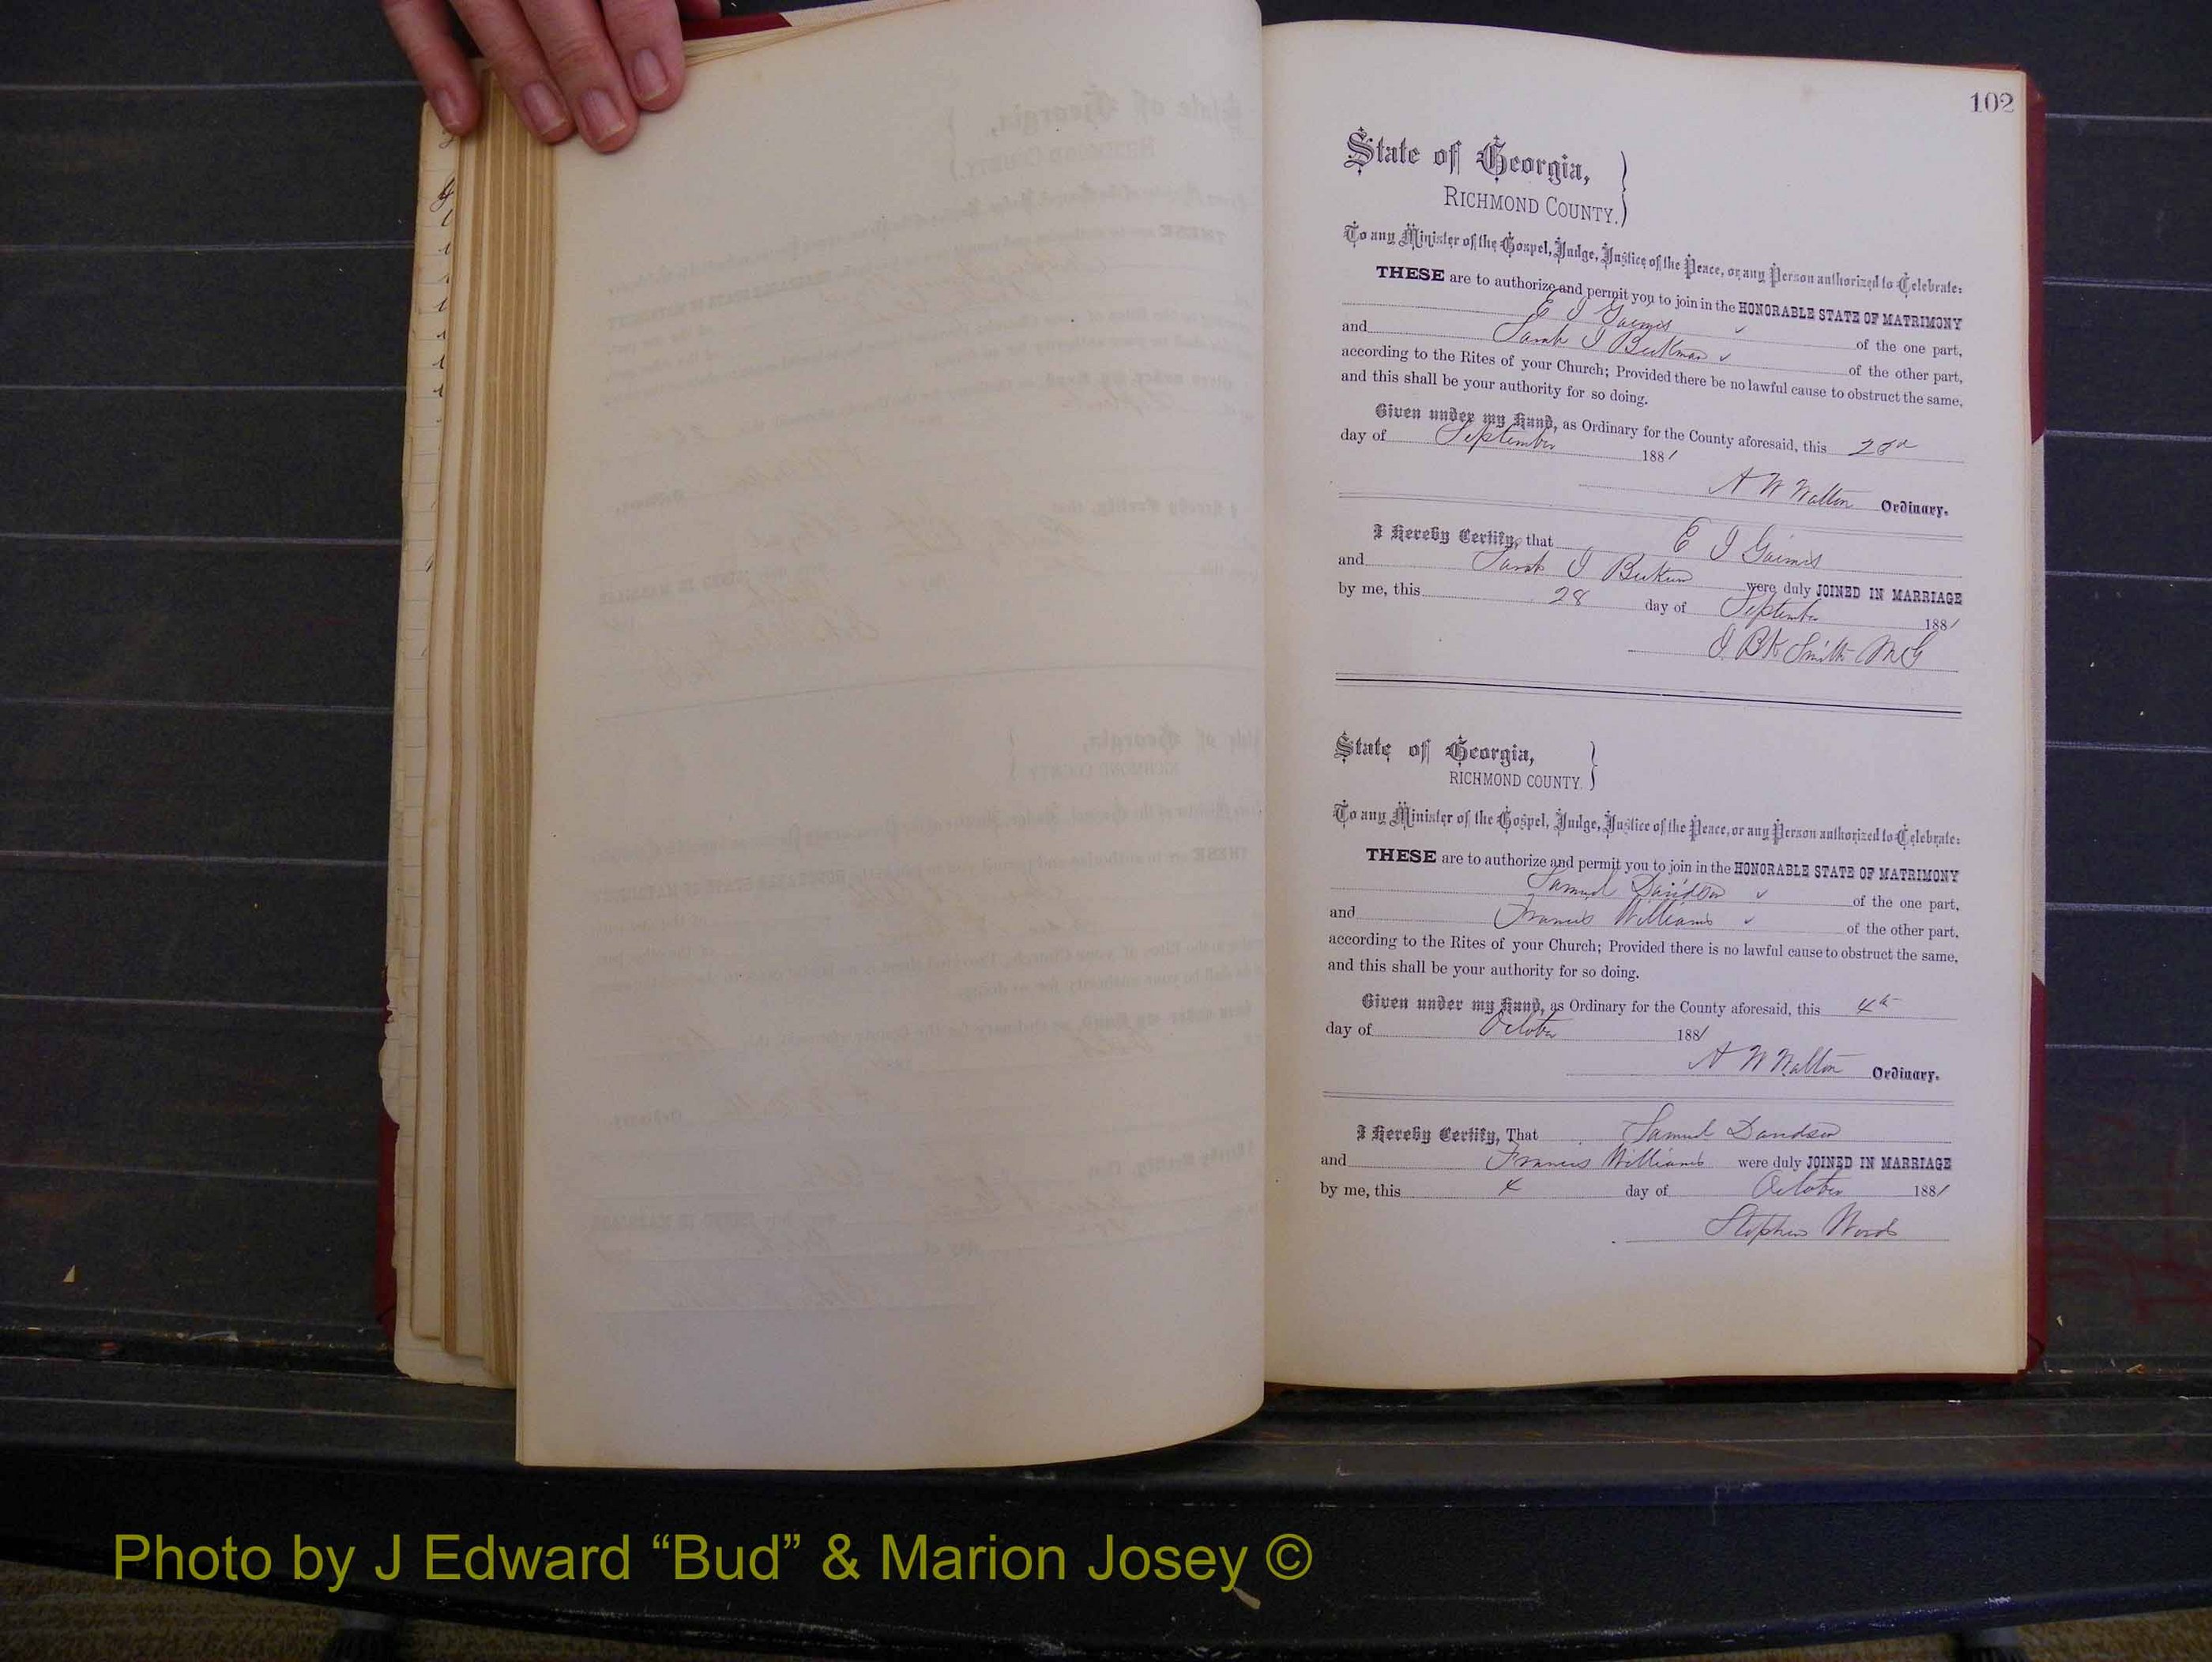 102
State of Georgia,
RICHMOND COUNTY.
To any Minister of the Gospel, Judge, Justice of the Peace, or any Person authorized to Celebrate:
THESE are to authorize and permit you to join in the HONORABLE STATE OF MATRIMONY
E J of the one part,
and Sarah J Beckman of the other part,
according to the Rites of your Church; Provided there be no lawful cause to obstruct the same,
and this shall be your authority for so doing.
Given under my Hand, as Ordinary for the County aforesaid, this
day of September 1881
A W Walton Ordinary.
I Hereby Certify, that E J
and Sarah J were duly JOINED IN MARRIAGE
by me, this 28 day of September 1881
Smith MG
State of Georgia,
RICHMOND COUNTY.
To any Minister of the Gospel, Judge, Justice of the Peace, or any Person authorized to Celebrate:
THESE are to authorize and permit you to join in the HONORABLE STATE OF MATRIMONY
Samuel Davidson of the one part,
and Francis Williams of the other part,
according to the Rites of your Church; Provided there is no lawful cause to obstruct the same,
and this shall be your authority for so doing.
Given under my Hand, as Ordinary for the County aforesaid, this 4th
day of October 1881
A W Walton Ordinary.
I Hereby Certify, That Samuel Davidson
and Francis Williams were duly JOINED IN MARRIAGE
by me, this 4 day of October 1881
Stephen Woods
Photo by J Edward “Bud” & Marion Josey ©